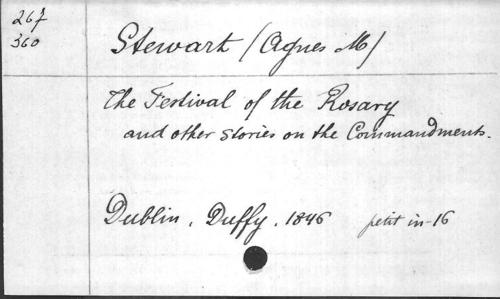 267
360
Stewart (Agnes M)
The Festival of the Rosary
and other stories on the Commandments.
Dublin, Duffy, 1846 petit in-16